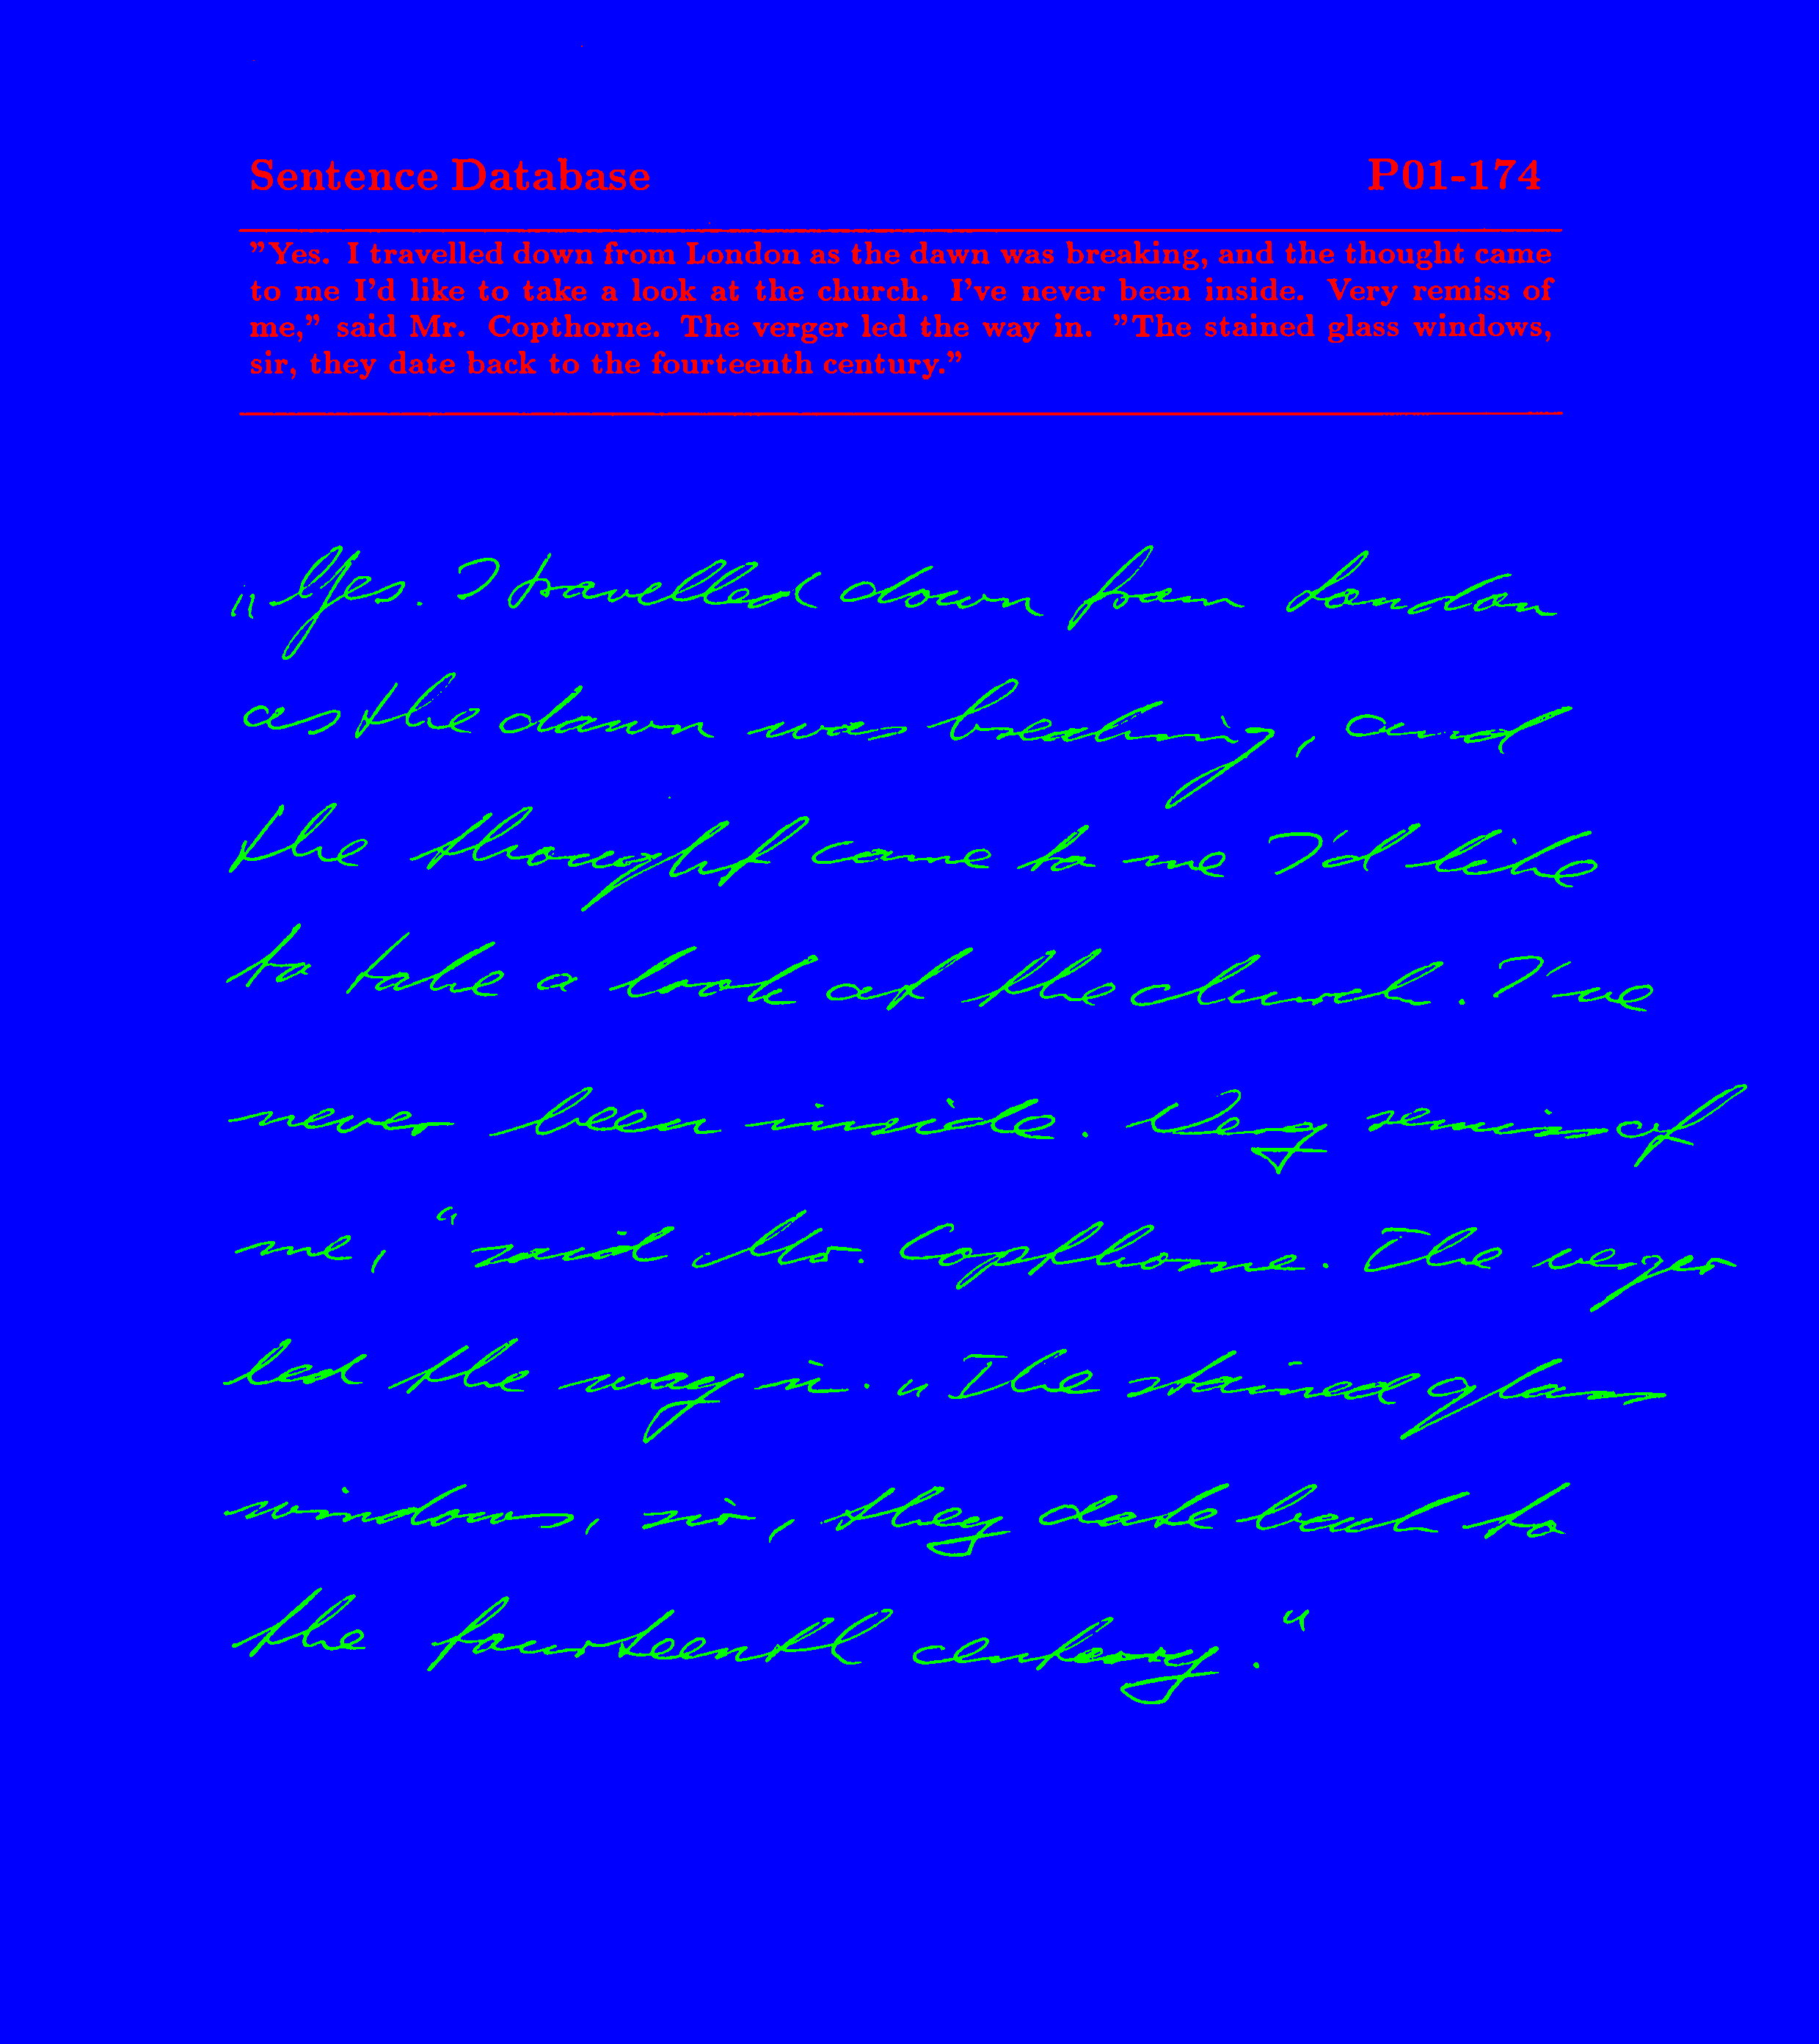 Sentence Database P01-174
"Yes. I travelled down from London as the dawn was breaking, and the thought came
to me I'd like to take a look at the church. I've never been inside. Very remiss of
me," said Mr. Copthorne. The verger led the way in. "The stained glass windows,
sir, they date back to the fourteenth century."
„Yes. I travelled down from London
as the dawn was breaking, and
the thought came to me I'd like
to take a look at the church. I've
never been inside. Very remiss of
me," said Mr. Copthorne. The verger
led the way in. „The stained glass
windows, sir, they date back to
the fourteenth century."